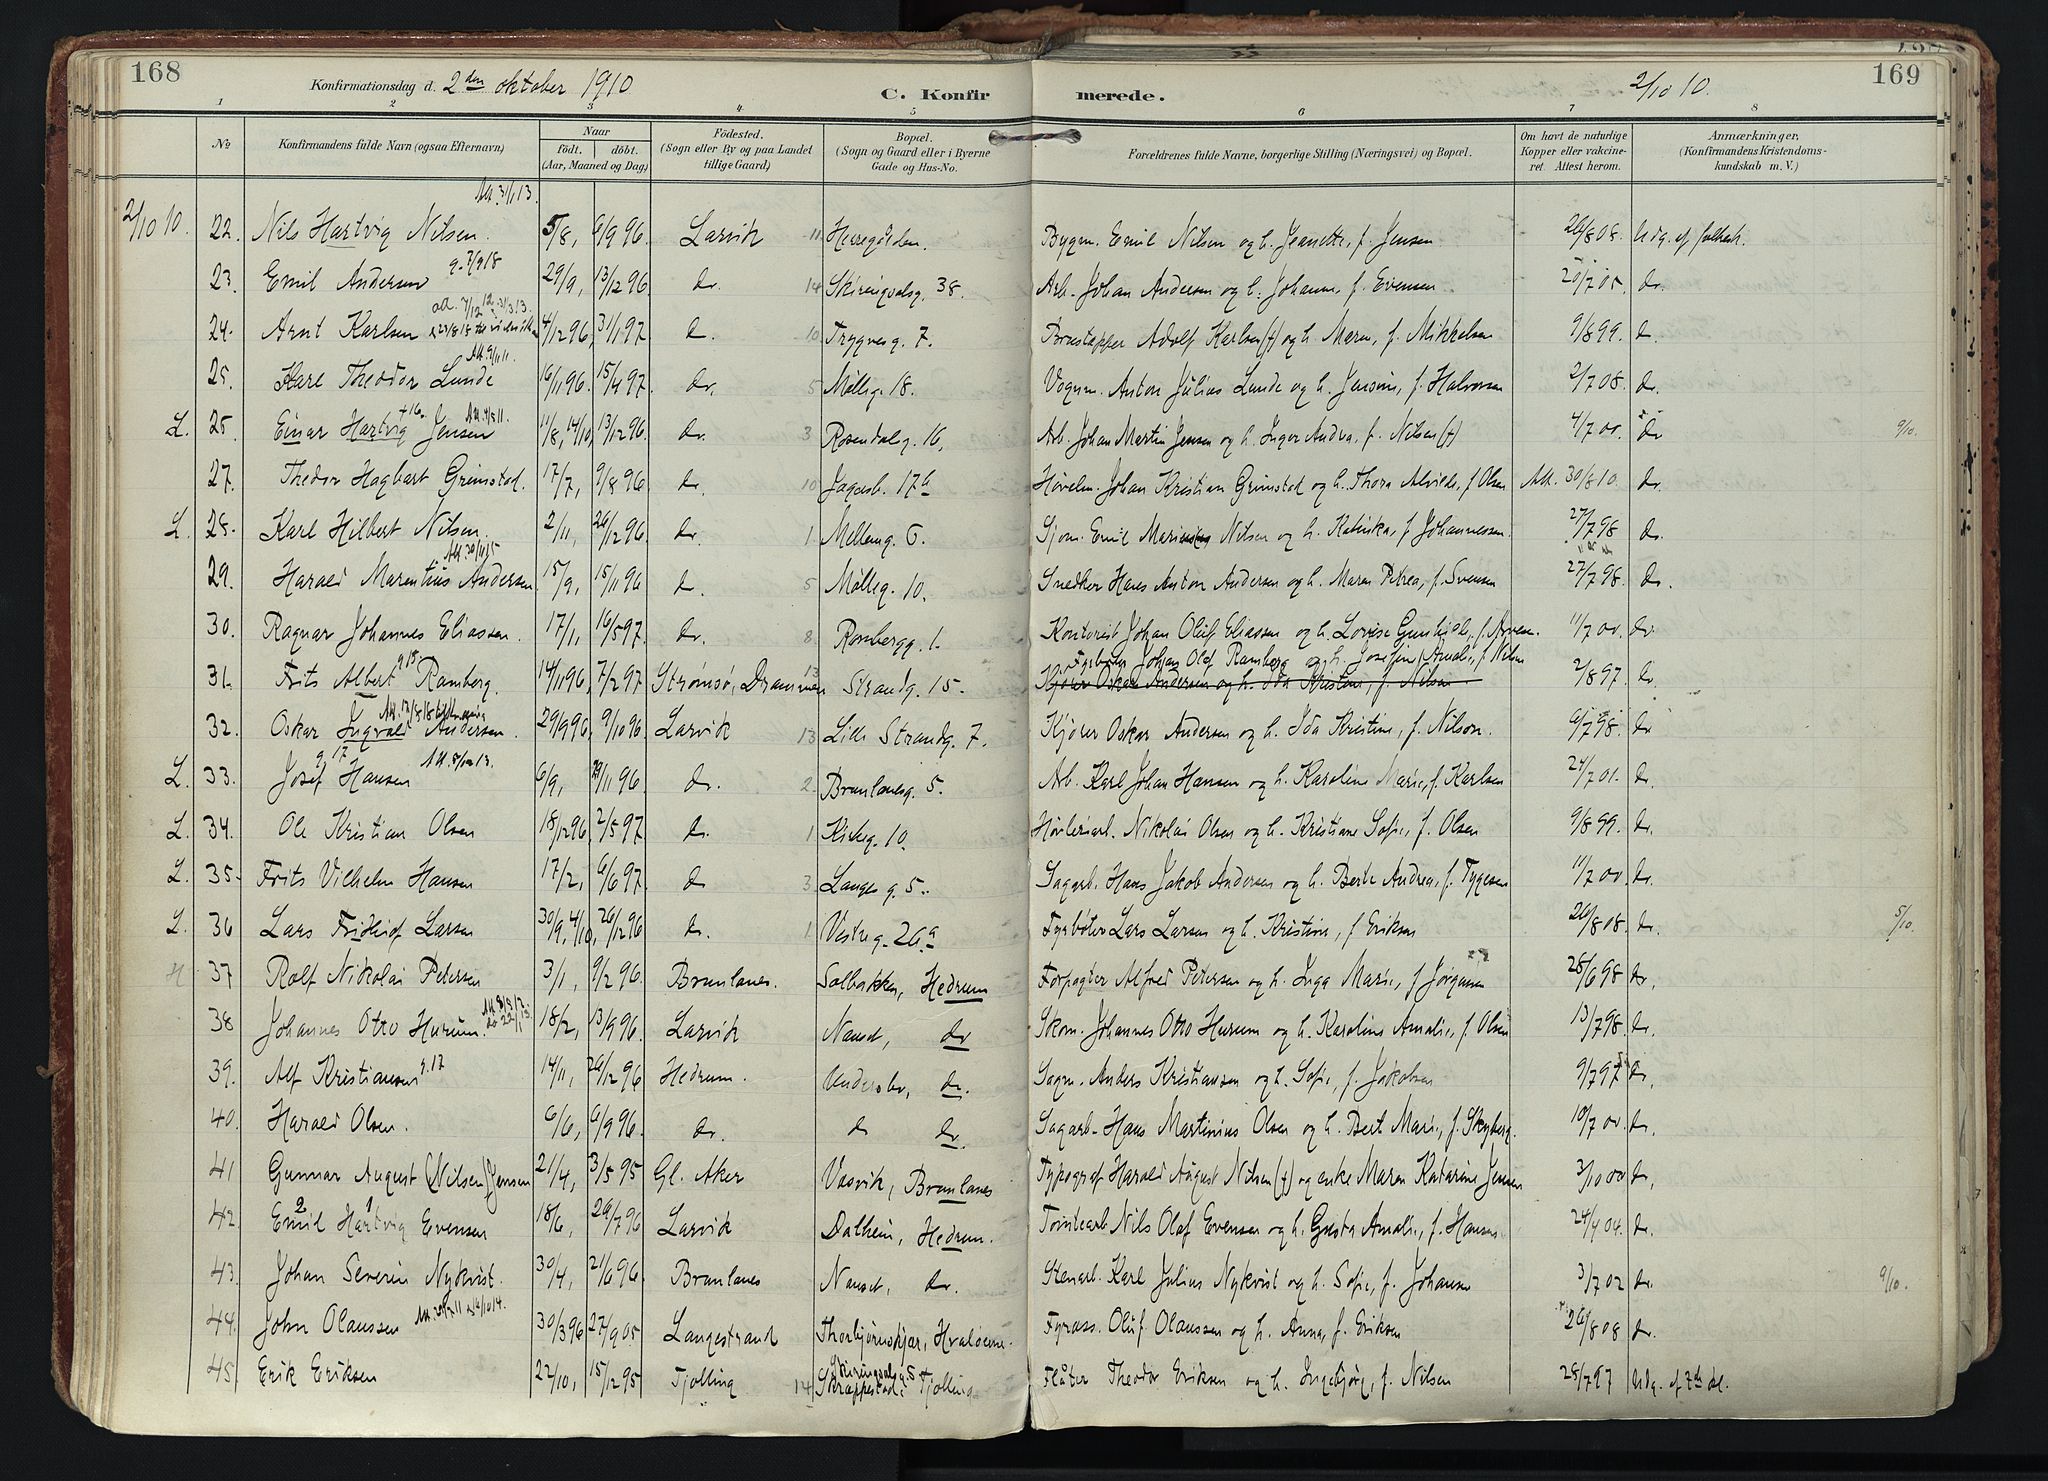 168
Konfirmationsdag d. 2den oktober 1910
C. Konfir
merede.
2/10 10.
169
1 2 3 4 5 6 7 8
No
Konfirmandens fulde Navn (ogsaa Efternavn)
Naar
födt. döbt.
(Aar, Maaned og Dag)
Födested.
(Sogn eller By og paa Landet tillige Gaard)
Bopæl.
(Sogn og Gaard eller i Byerne Gade og Hus-No.
Forældrenes fulde Navne, borgerlige Stilling (Næringsvei) og Bopæl.
Om havt de naturlige Kopper eller vakcineret. Attest herom.
Anmærkninger.
(Konfirmandens Kristendomskundskab m. V.)
2/10 10. 22. Nils Hartvig Nilsen. Att. 31/1 13. 5/8, 6/9 96. Larvik 11 Herregården. Bygm. Emil Nilsen og h. Jeanette, f. Jensen 26/8 08. Udg. af folkesk.
23. Emil Andersen 29/9, 13/12 96. do. 14 Skiringsalsg. 38. Arb. Johan Andersen og h. Johanne f. Evensen 20/7 05. do.
24. Arnt Karlsen 4/12 96, 31/1 97 do. 10 Trygvesg. 7. Adolf Karlsen (†) og h. Maren, f. Mikkelsen 9/8 99. do.
25. Karl Theodor Lunde 16/11 96. 15/4 97. do. 5 Mølleg. 18. Vognm. Anton Julius Lunde og h. Jensine, f. Halvorsen 2/7 08. do.
L. 25. Einar Hartvig Jensen 11/8, 14/10, 13/12 96. do. 3 Rosendalsg. 16. Arb. Johan Martin Jensen og h. Inger Andrea, f. Nilsen (†) 4/7 00. do 9/10.
27. Thedor Hagbart Grimstad. 17/7, 9/8 96 do. 10 Jegersb. 17b Høvelm. Johan Kristian Grimstad og h. Thora Alvilde, f. Olsen Att. 30/8 10. do.
L 28. Karl Hilbert Nilsen. 2/11, 26/12 96. do. 1. Mellemg. 6. Sjøm. Emil Marinius Nilsen og h. Katinka, f. Johannessen. 27/7 98 do.
29. Harald Marentius Andersen 15/9, 15/11 96 do. 5 Mølleg. 10. Snedker Hans Anton Andersen og h. Maren Petrea, f. Svensen 27/7 98. do.
30. Ragnar Johannes Eliassen. 17/1, 16/5 97. do. 8 Rombergg. 1. Kontorist Johan Oluf Eliassen og h. Lovise Gunhild, f. 11/7 00. do.
31. Frits Albert Ramberg. 14/11 96, 7/2 97 Strømsø, Drammen 13 Strandg. 15. Fyrbøter Johan Olaf Ramberg og h. Josefine Amalie, f. Nilsen 2/8 97. do.
Kjører Oskar Andersen og h. Ida Kristine, f. Nilsen
32. Oskar Ingvald Andersen. 29/9 96 9/10 96. Larvik 13 Lille Strandg. 7. Kjører Oskar Andersen og h. Ida Kristine, f. Nilsen. 6/7 98. do
L. 33. Josef Hansen Att. 8/10 13. 6/9, 29/11 96 do. 2. Brunlanesg. 5. Arb. Karl Johan Hansen og h. Karoline Marie, f. Karlsen 24/7 01. do.
L. 34. Ole Kristian Olsen 18/12 96, 2/5 97. do. 1 Kirkeg. 10. Høvleriarb. Nikolai Olsen og h. Kristiane Sofie, f. Olsen 9/8 99. do.
L. 35. Frits Vilhelm Hansen 17/2, 6/6 97. do 3 Langes g. 5. Sagarb. Hans Jakob Andersen og h. Berte Andrea, f. Tygesen 11/7 00. do.
L. 36 Lars Fridtiof Larsen 30/9, 4/10, 26/12 96 do. 1 Vestreg. 26a Fyrbøter Lars Larsen og h. Kristine, f. Eriksen 26/8 08. do. 5/10.
H 37 Rolf Nikolai Petersen 3/1, 9/2 96. Brunlanes. Solbakken, Hedrum Forpagter Alfred Petersen og h. Inga Marie, f. Jørgensen 28/6 98. do.
38 Johannes Otto Hurum. 18/2, 13/9 96. Larvik Nanset, do Skom. Johannes Otto Hurum og h. Karoline Amalie, f. Olsen 13/7 98. do.
39. Alf Kristiansen 14/11, 26/12 96 Hedrum. Undersbo, do. Sagm. Anders Kristiansen og h. Sofie, f. Jakobsen 9/7 97 do.
40. Harald Olsen. 6/6, 6/9 96. do. do do Sagarb. Hans Martinius Olsen og h. Berte Marie, f. Skyberg. 10/7 00. do.
41 Gunnar August (Nilsen) Jensen 21/4, 3/5 95 Gl. Aker Vasvik, Brunlanes Typograf Harald August Nilsen (†) og enke Maren Katarine Jensen 3/10 00 do.
42. Emil Hartvig Evensen 18/6, 26/7 96 Larvik Dalheim, Hedrum. Tomtearb. Nils Olaf Evensen og h. Gusta Amalie, f. Hansen 24/4 04. do.
43. Johan Severin Nykvist. 30/4, 21/6 96. Brunlanes Nanset, do. Stenarb. Karl Julius Nykvist og h. Sofie, f. Johansen 3/7 02 do. 9/10.
44. John Olaussen 30/3 96 27/9 05. Langestrand Thorbjørnskjær, Hvaløerne. Fyrass. Oluf Olaussen og h. Anna, f. Eriksen 26/8 08 do.
45. Erik Eriksen 22/10, 15/12 95 Tjølling 14 Skiringsalsg. 5 Skrappestad, Tjølling Flåter Theodor Eriksen og h. Ingebjørg, f. Nilsen 28/7 97 Udg. af 7th kl.